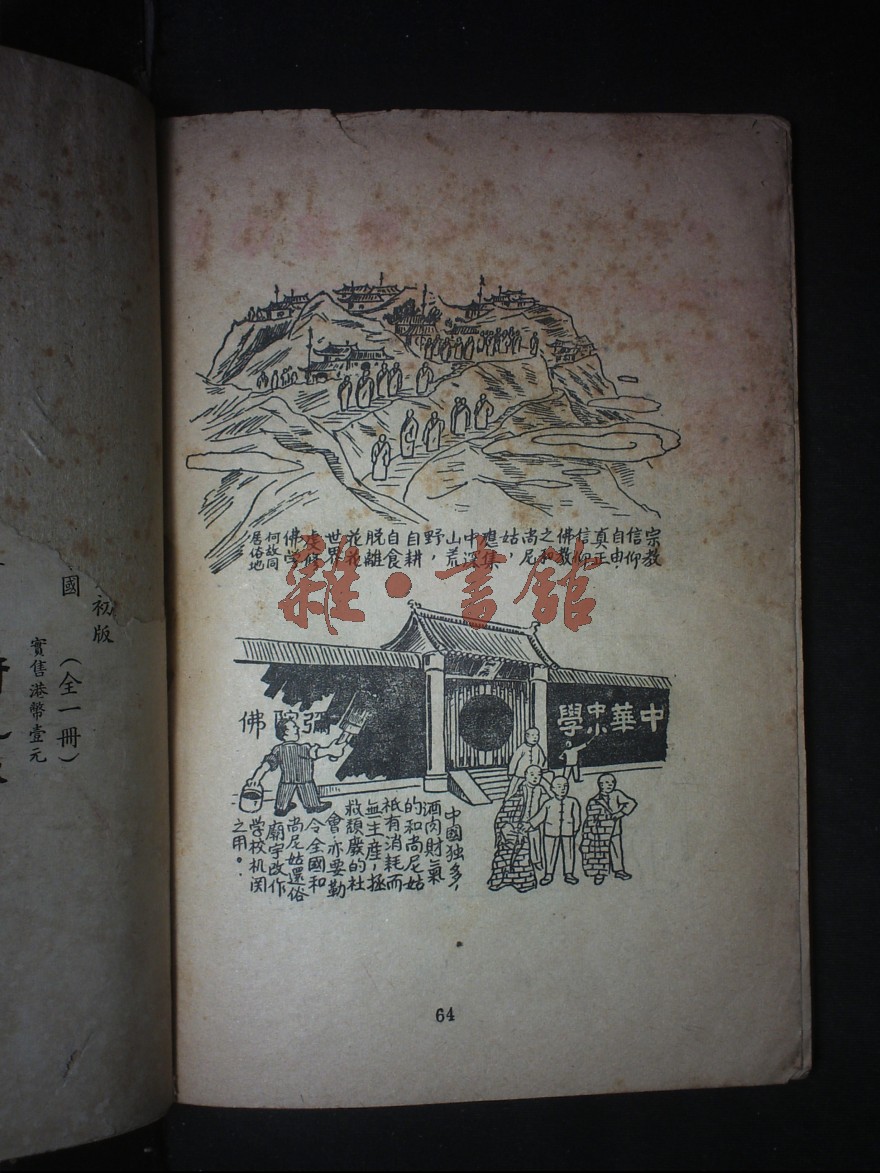 宗教
信仰
自由!
真正
信仰
佛教
之和
尚尼
姑,
應集
中深
山荒
野,
自耕
自食
脫離
花花
世界
虔修
佛学
何故同
居俗地
雜·書館
中華中小學
彌陀佛
中國独多,
酒肉財氣
的和尚尼姑
祇有消耗而
無生産,拯
救頹廢的社
會,亦要勤
令全國和
尚尼姑還俗
廟宇改作
学校机関
之用。
64
初版
國
(全一冊)
實售港幣壹元